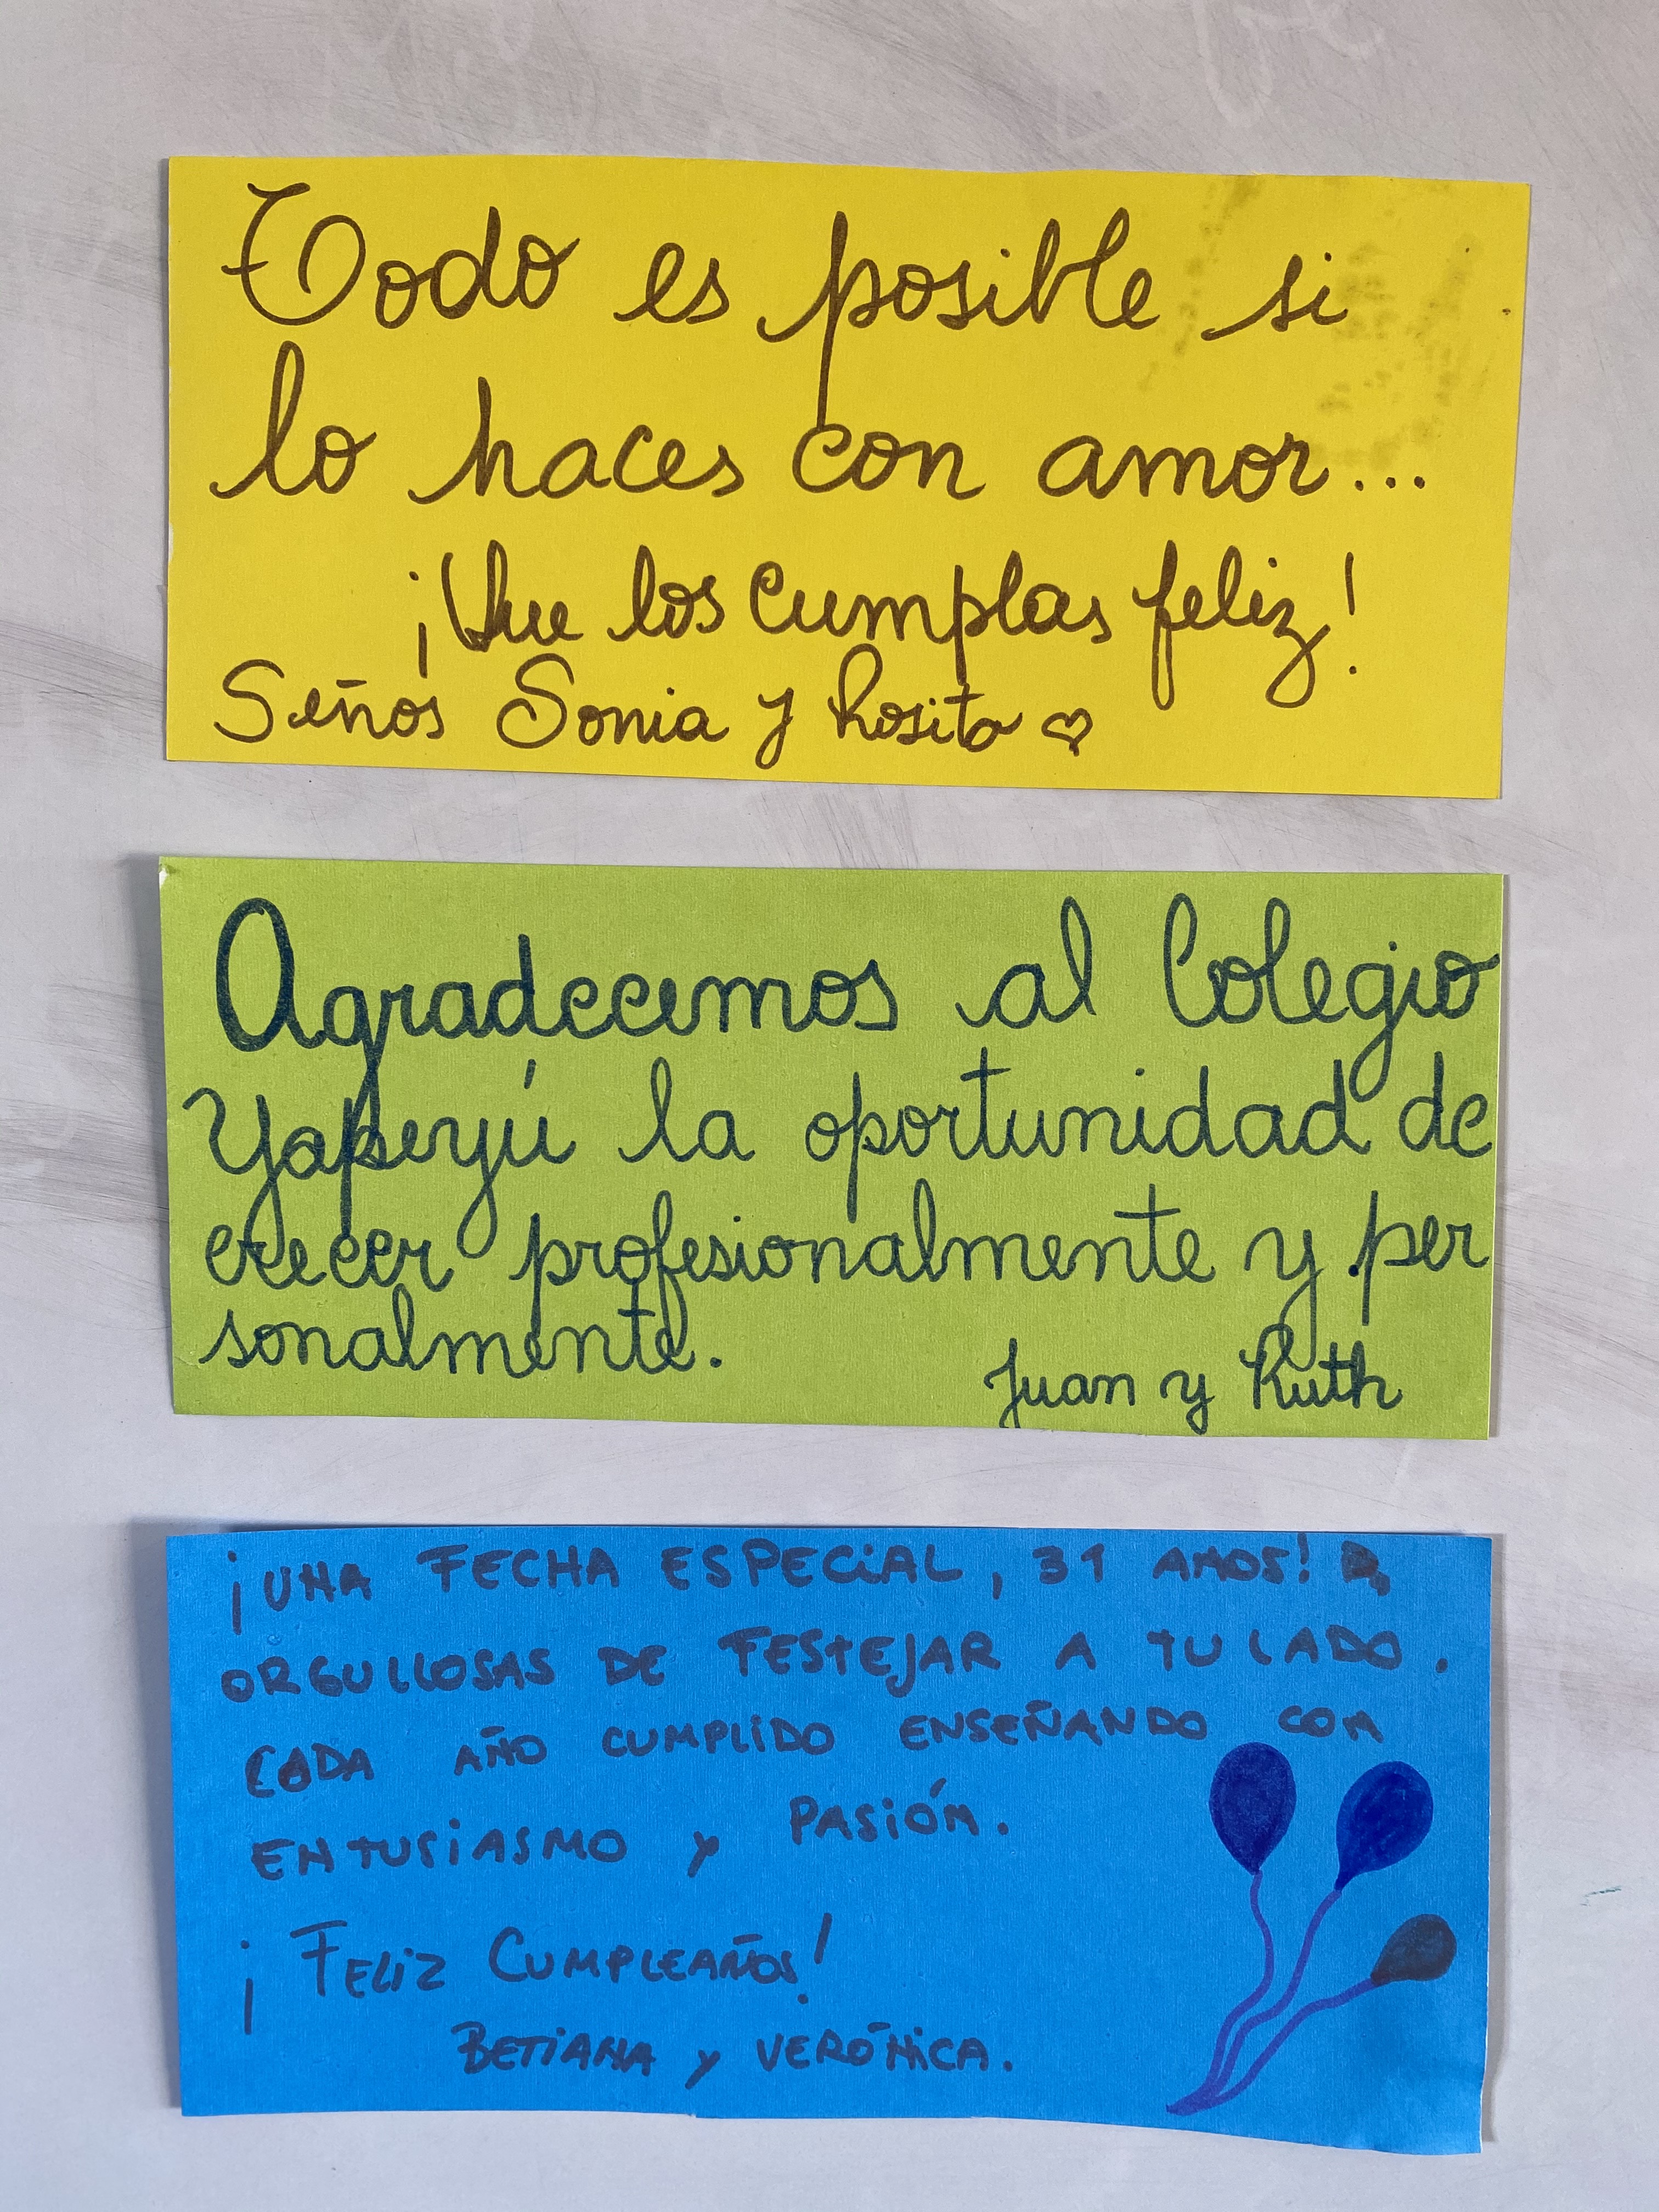 Todo es posible si
lo haces con amor...
¡Que los cumplas feliz!
Seños Sonia y Rosita
Agradecemos al Colegio
Yapeyú la oportunidad de
crecer profesionalmente y per
sonalmente.
Juan y Ruth
¡UNA FECHA ESPECiAL, 31 AÑOS!
ORGULLOSAS DE FESTEJAR A TU LADO.
CADA AÑO CUMPLIDO ENSEÑANDO CON
ENTUSiASMO y PASiÓN.
¡FELiZ CUMPLEAÑOS!
BETiANA y VERÓNiCA.